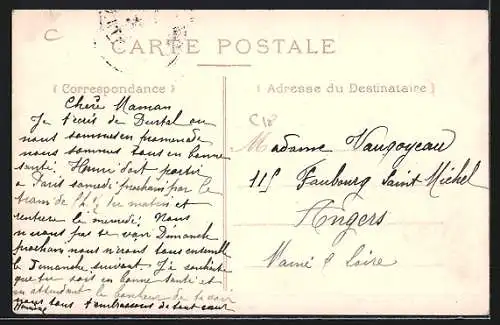 C
CARTE POSTALE
(Correspondance)
(Adresse du Destinataire)
Chère Maman
Je t'écris de Durtal ou
nous sommes en promenade
nous sommes tous en bonne
santé. Henri doit partir
a Paris samedi prochain par le
train de du matin et
rentrera le mercredi Nous
n'irons pas te voir Dimanche
prochain nous n'irons tous ensemble
le Dimanche suivant. Je souhaite
que tu sois en bonne santé et
en attendant le bonheur de te voir
nous tous t'embrassons de tout cœur
C 18
Madame Vauzoyeau
115 Faubourg Saint Michel
Angers
Maine & Loire